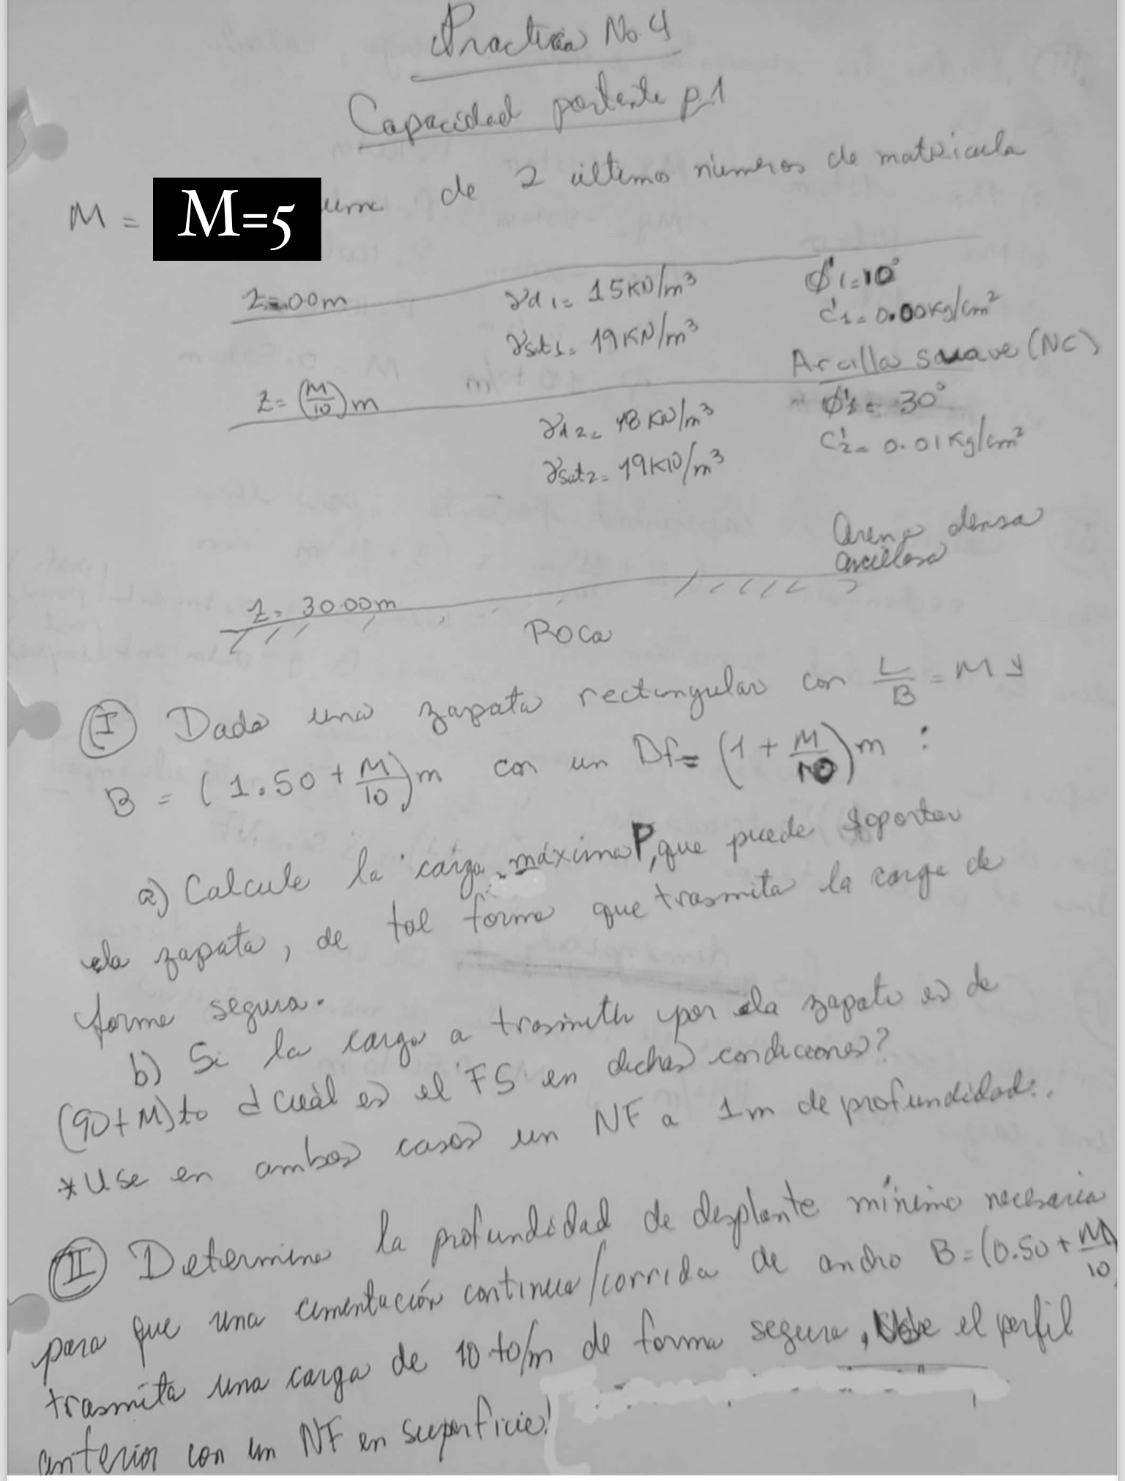 Practica No 4
Capacidad portante p.1
M = M=5 de 2 últimos números de matricula
Z=.00m γd1= 15KN/m³ Ø'1=10°
γsat1= 19KN/m³ C'1= 0.00Kg/cm²
Arcilla suave (NC)
Z= (M/10)m γd2= 18KN/m³ Ø'2= 30°
γsat2= 19KN/m³ C'2= 0.01Kg/cm²
Arena densa
arcillosa
Z= 30.00m
Roca
(I) Dada una zapata rectangular con L/B = M y
B = (1.50 + M/10)m con un Df= (1 + M/10)m :
a) Calcule la carga máxima P, que puede soportar
la zapata, de tal forma que trasmita la carga de
forma segura.
b) Si la carga a trasmitir por la zapata es de
(90+M)to ¿cuál es el FS en dichas condiciones?
*Use en ambos casos un NF a 1m de profundidad..
(II) Determine la profundidad de desplante mínima necesaria
para que una cimentación continua/corrida de ancho B=(0.50+M/10
trasmita una carga de 10 to/m de forma segura, Use el perfil
anterior con un NF en superficie!